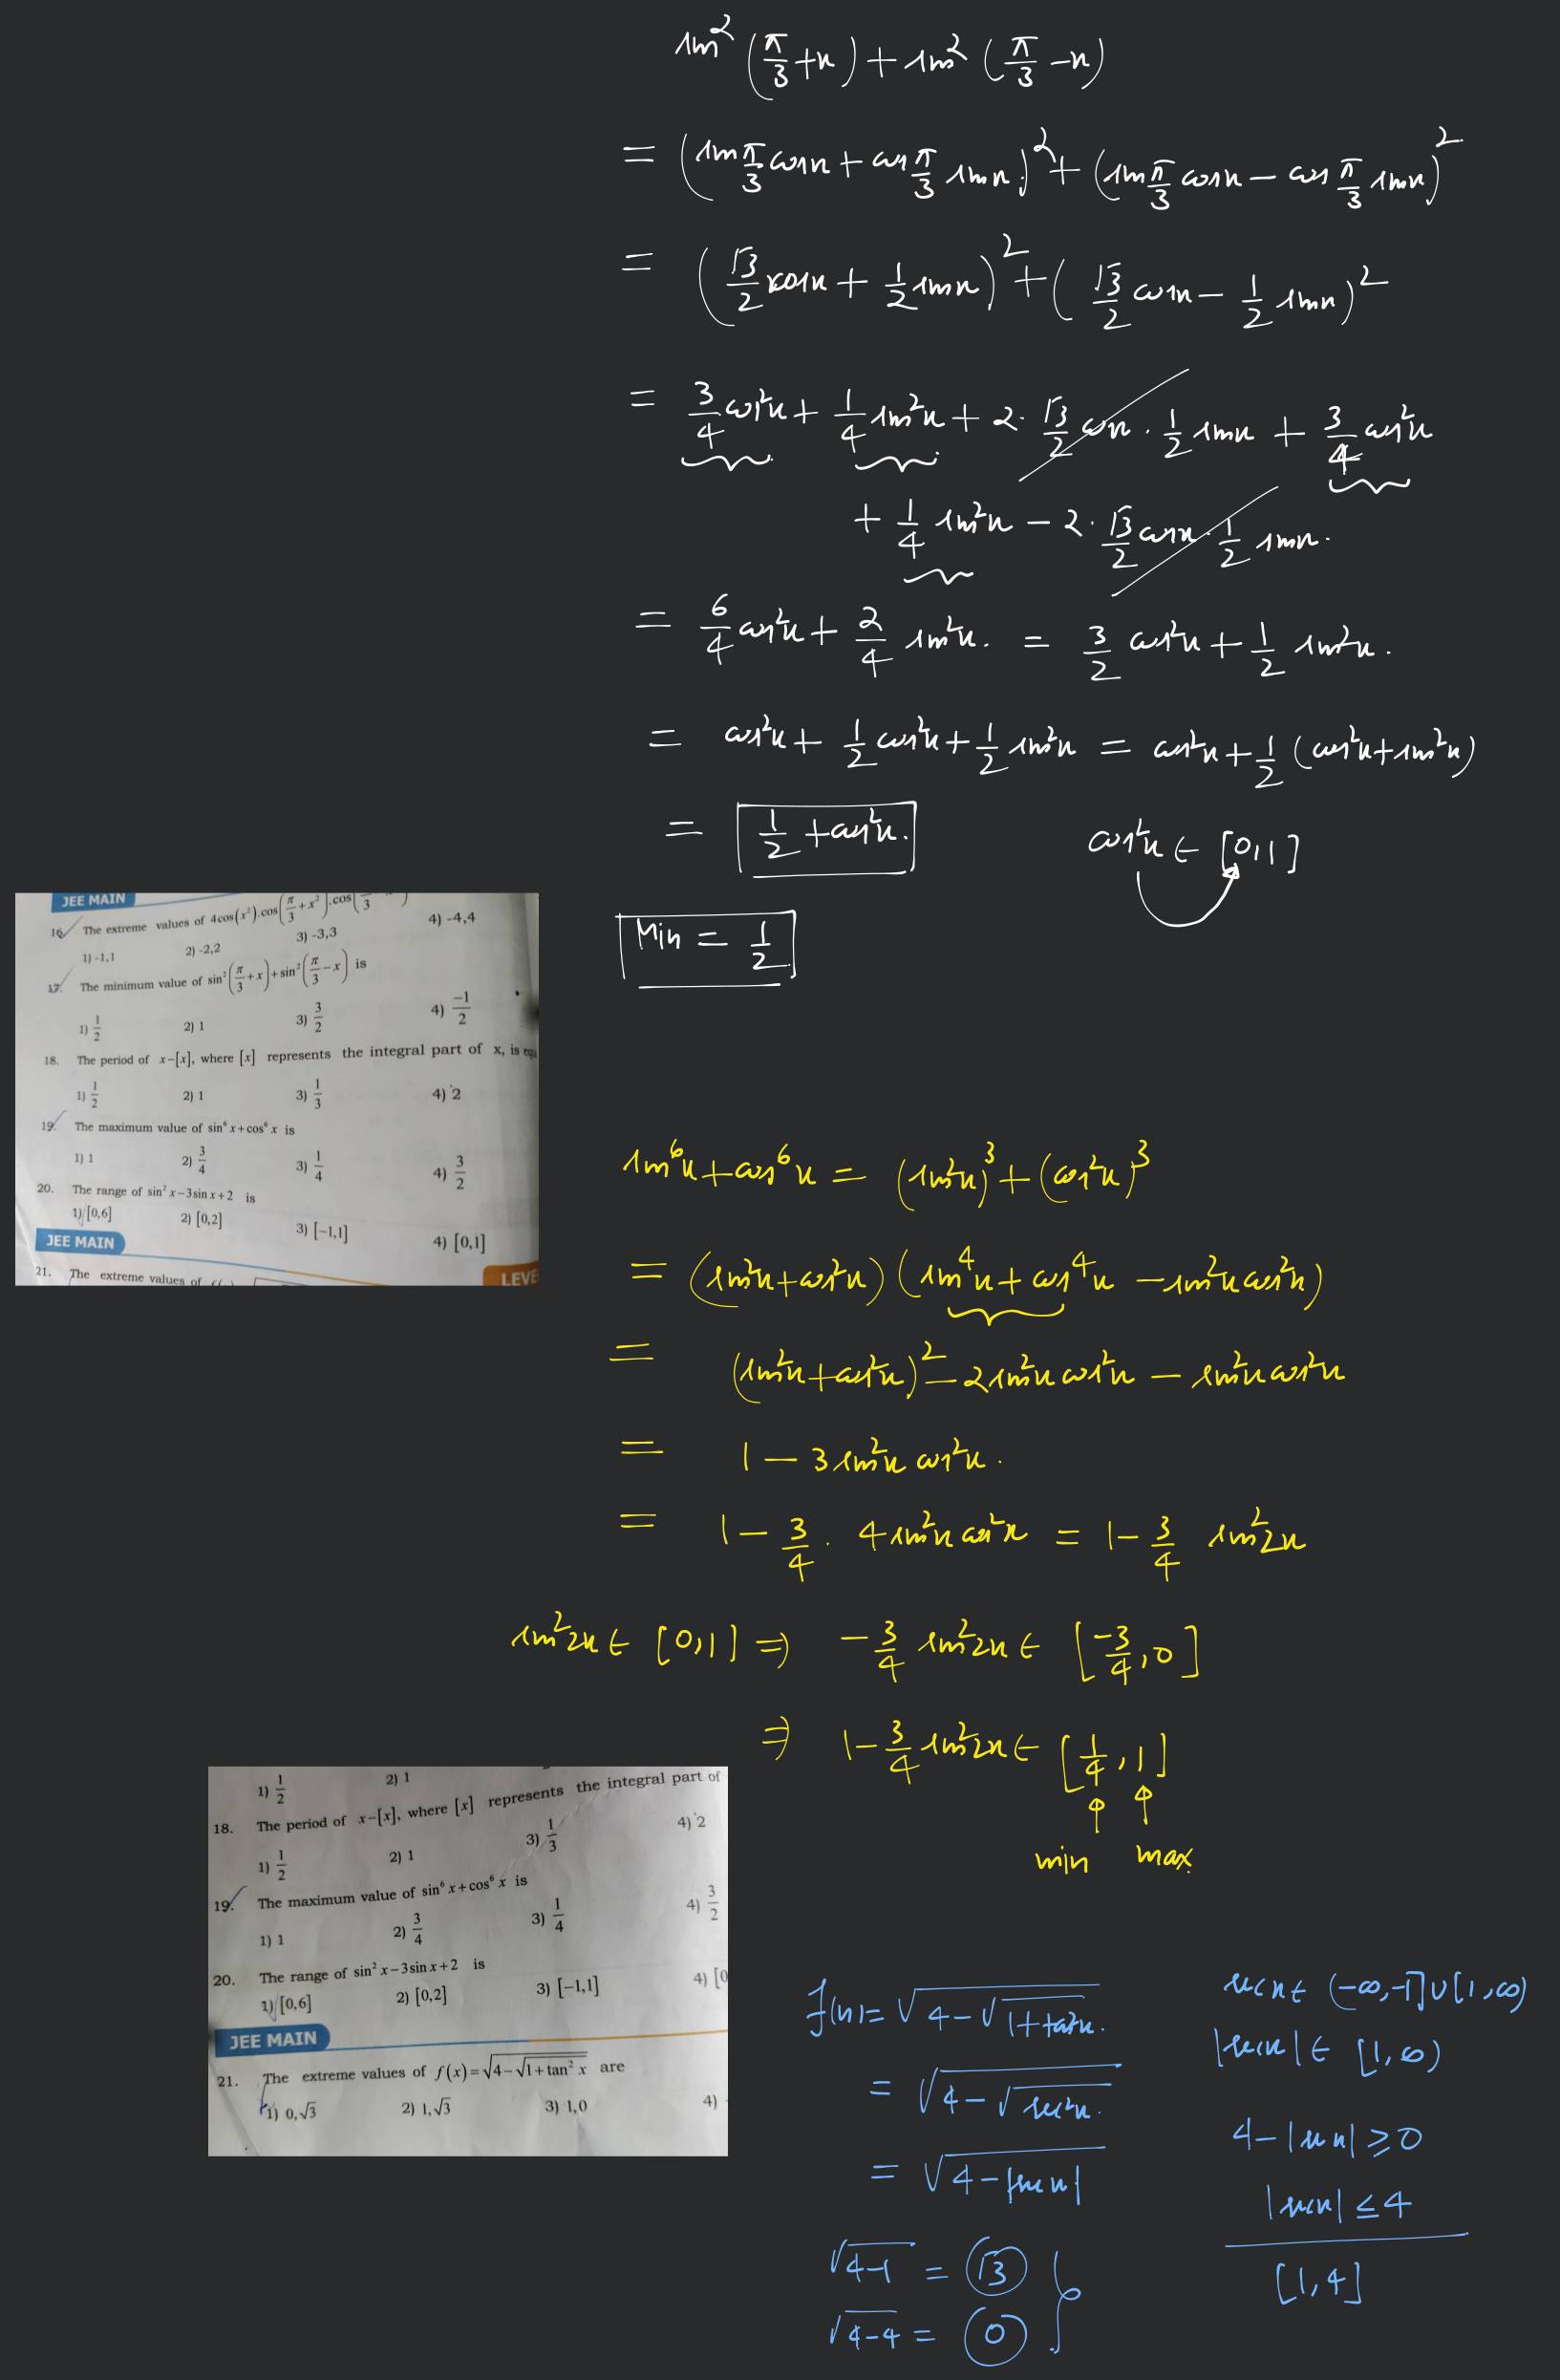 sin²(π/3+x)+sin²(π/3-x)
= (sin π/3 cosx + cos π/3 sinx)²+(sin π/3 cosx - cos π/3 sinx)²
= (√3/2 cosx + 1/2 sinx)²+(√3/2 cosx - 1/2 sinx)²
= 3/4 cos²x + 1/4 sin²x + 2·√3/2 cosx · 1/2 sinx + 3/4 cos²x
+ 1/4 sin²x - 2·√3/2 cosx · 1/2 sinx.
= 6/4 cos²x + 2/4 sin²x. = 3/2 cos²x + 1/2 sin²x.
= cos²x + 1/2 cos²x + 1/2 sin²x = cos²x + 1/2 (cos²x+sin²x)
= 1/2 + cos²x. cos²x ∈ [0,1]
Min = 1/2
JEE MAIN
16. The extreme values of 4cos(x²).cos(π/3+x²).cos(π/3
1) -1,1 2) -2,2 3) -3,3 4) -4,4
17. The minimum value of sin²(π/3+x)+sin²(π/3-x) is
1) 1/2 2) 1 3) 3/2 4) -1/2
18. The period of x-[x], where [x] represents the integral part of x, is equ
1) 1/2 2) 1 3) 1/3 4) 2
19. The maximum value of sin⁶x+cos⁶x is
1) 1 2) 3/4 3) 1/4 4) 3/2
20. The range of sin²x-3sinx+2 is
1) [0,6] 2) [0,2] 3) [-1,1] 4) [0,1]
JEE MAIN LEVE
21. The extreme values of
sin⁶x+cos⁶x = (sin²x)³+(cos²x)³
= (sin²x+cos²x)(sin⁴x+cos⁴x -sin²xcos²x)
= (sin²x+cos²x)²-2sin²xcos²x - sin²xcos²x
= 1-3sin²x cos²x.
= 1-3/4 · 4sin²xcos²x = 1-3/4 sin²2x
sin²2x ∈ [0,1] ⇒ -3/4 sin²2x ∈ [-3/4,0]
⇒ 1-3/4 sin²2x ∈ [1/4,1]
min max
1) 1/2 2) 1
18. The period of x-[x], where [x] represents the integral part of
1) 1/2 2) 1 3) 1/3 4) 2
19. The maximum value of sin⁶x+cos⁶x is
1) 1 2) 3/4 3) 1/4 4) 3/2
20. The range of sin²x-3sinx+2 is
1) [0,6] 2) [0,2] 3) [-1,1] 4) [0
JEE MAIN
21. The extreme values of f(x)=√(4-√(1+tan²x)) are
1) 0,√3 2) 1,√3 3) 1,0 4)
f(x)=√(4-√(1+tan²x.))
= √(4-√(sec²x.))
= √(4-|secx|)
√(4-1) = √3
√(4-4) = 0
secx ∈ (-∞,-1]∪[1,∞)
|secx| ∈ [1,∞)
4-|secx| ≥0
|secx| ≤4
[1,4]